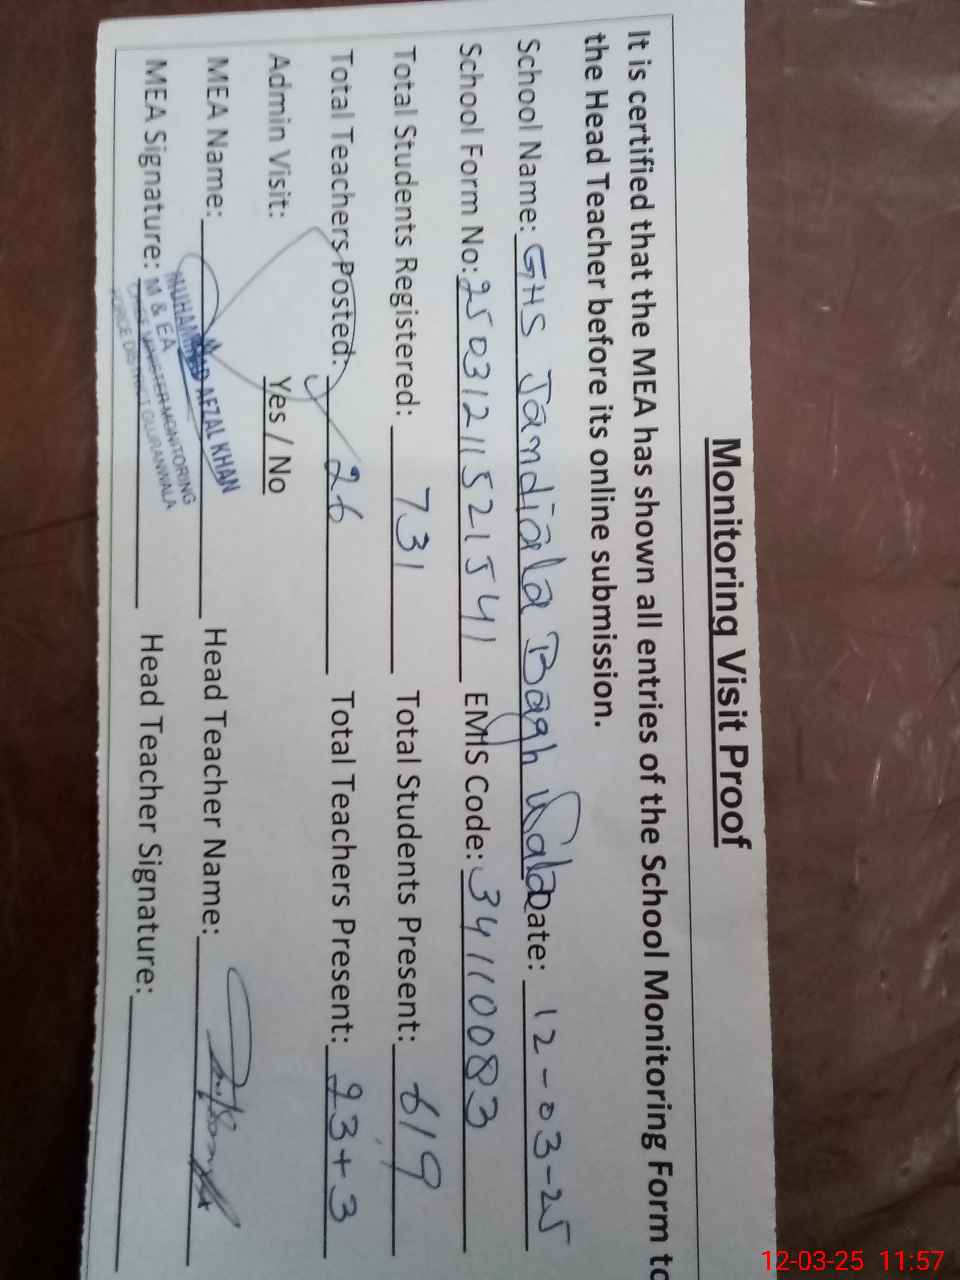 Monitoring Visit Proof
It is certified that the MEA has shown all entries of the School Monitoring Form to
the Head Teacher before its online submission.
School Name: GHS Jandiala Bagh Wala Date: 12-03-25
School Form No: 25031211521541 EMIS Code: 34110083
Total Students Registered: 731 Total Students Present: 619
Total Teachers Posted: 26 Total Teachers Present: 23+3
Admin Visit: Yes / No
MEA Name: Head Teacher Name:
MEA Signature: Head Teacher Signature:
MUHAMMAD AFZAL KHAN
M & EA
CHIEF MINISTER MONITORING
FORCE DISTRICT GUJRANWALA
12-03-25 11:57